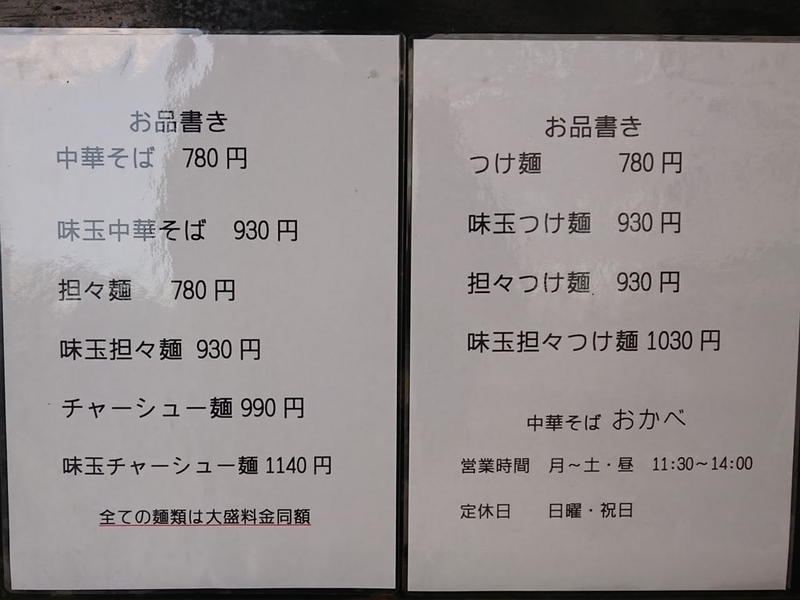 お品書き
中華そば 780円
味玉中華そば 930円
担々麺 780円
味玉担々麺 930円
チャーシュー麺 990円
味玉チャーシュー麺 1140円
全ての麺類は大盛料金同額
お品書き
つけ麺 780円
味玉つけ麺 930円
担々つけ麺 930円
味玉担々つけ麺 1030円
中華そば おかべ
営業時間 月~土・昼 11:30~14:00
定休日 日曜・祝日